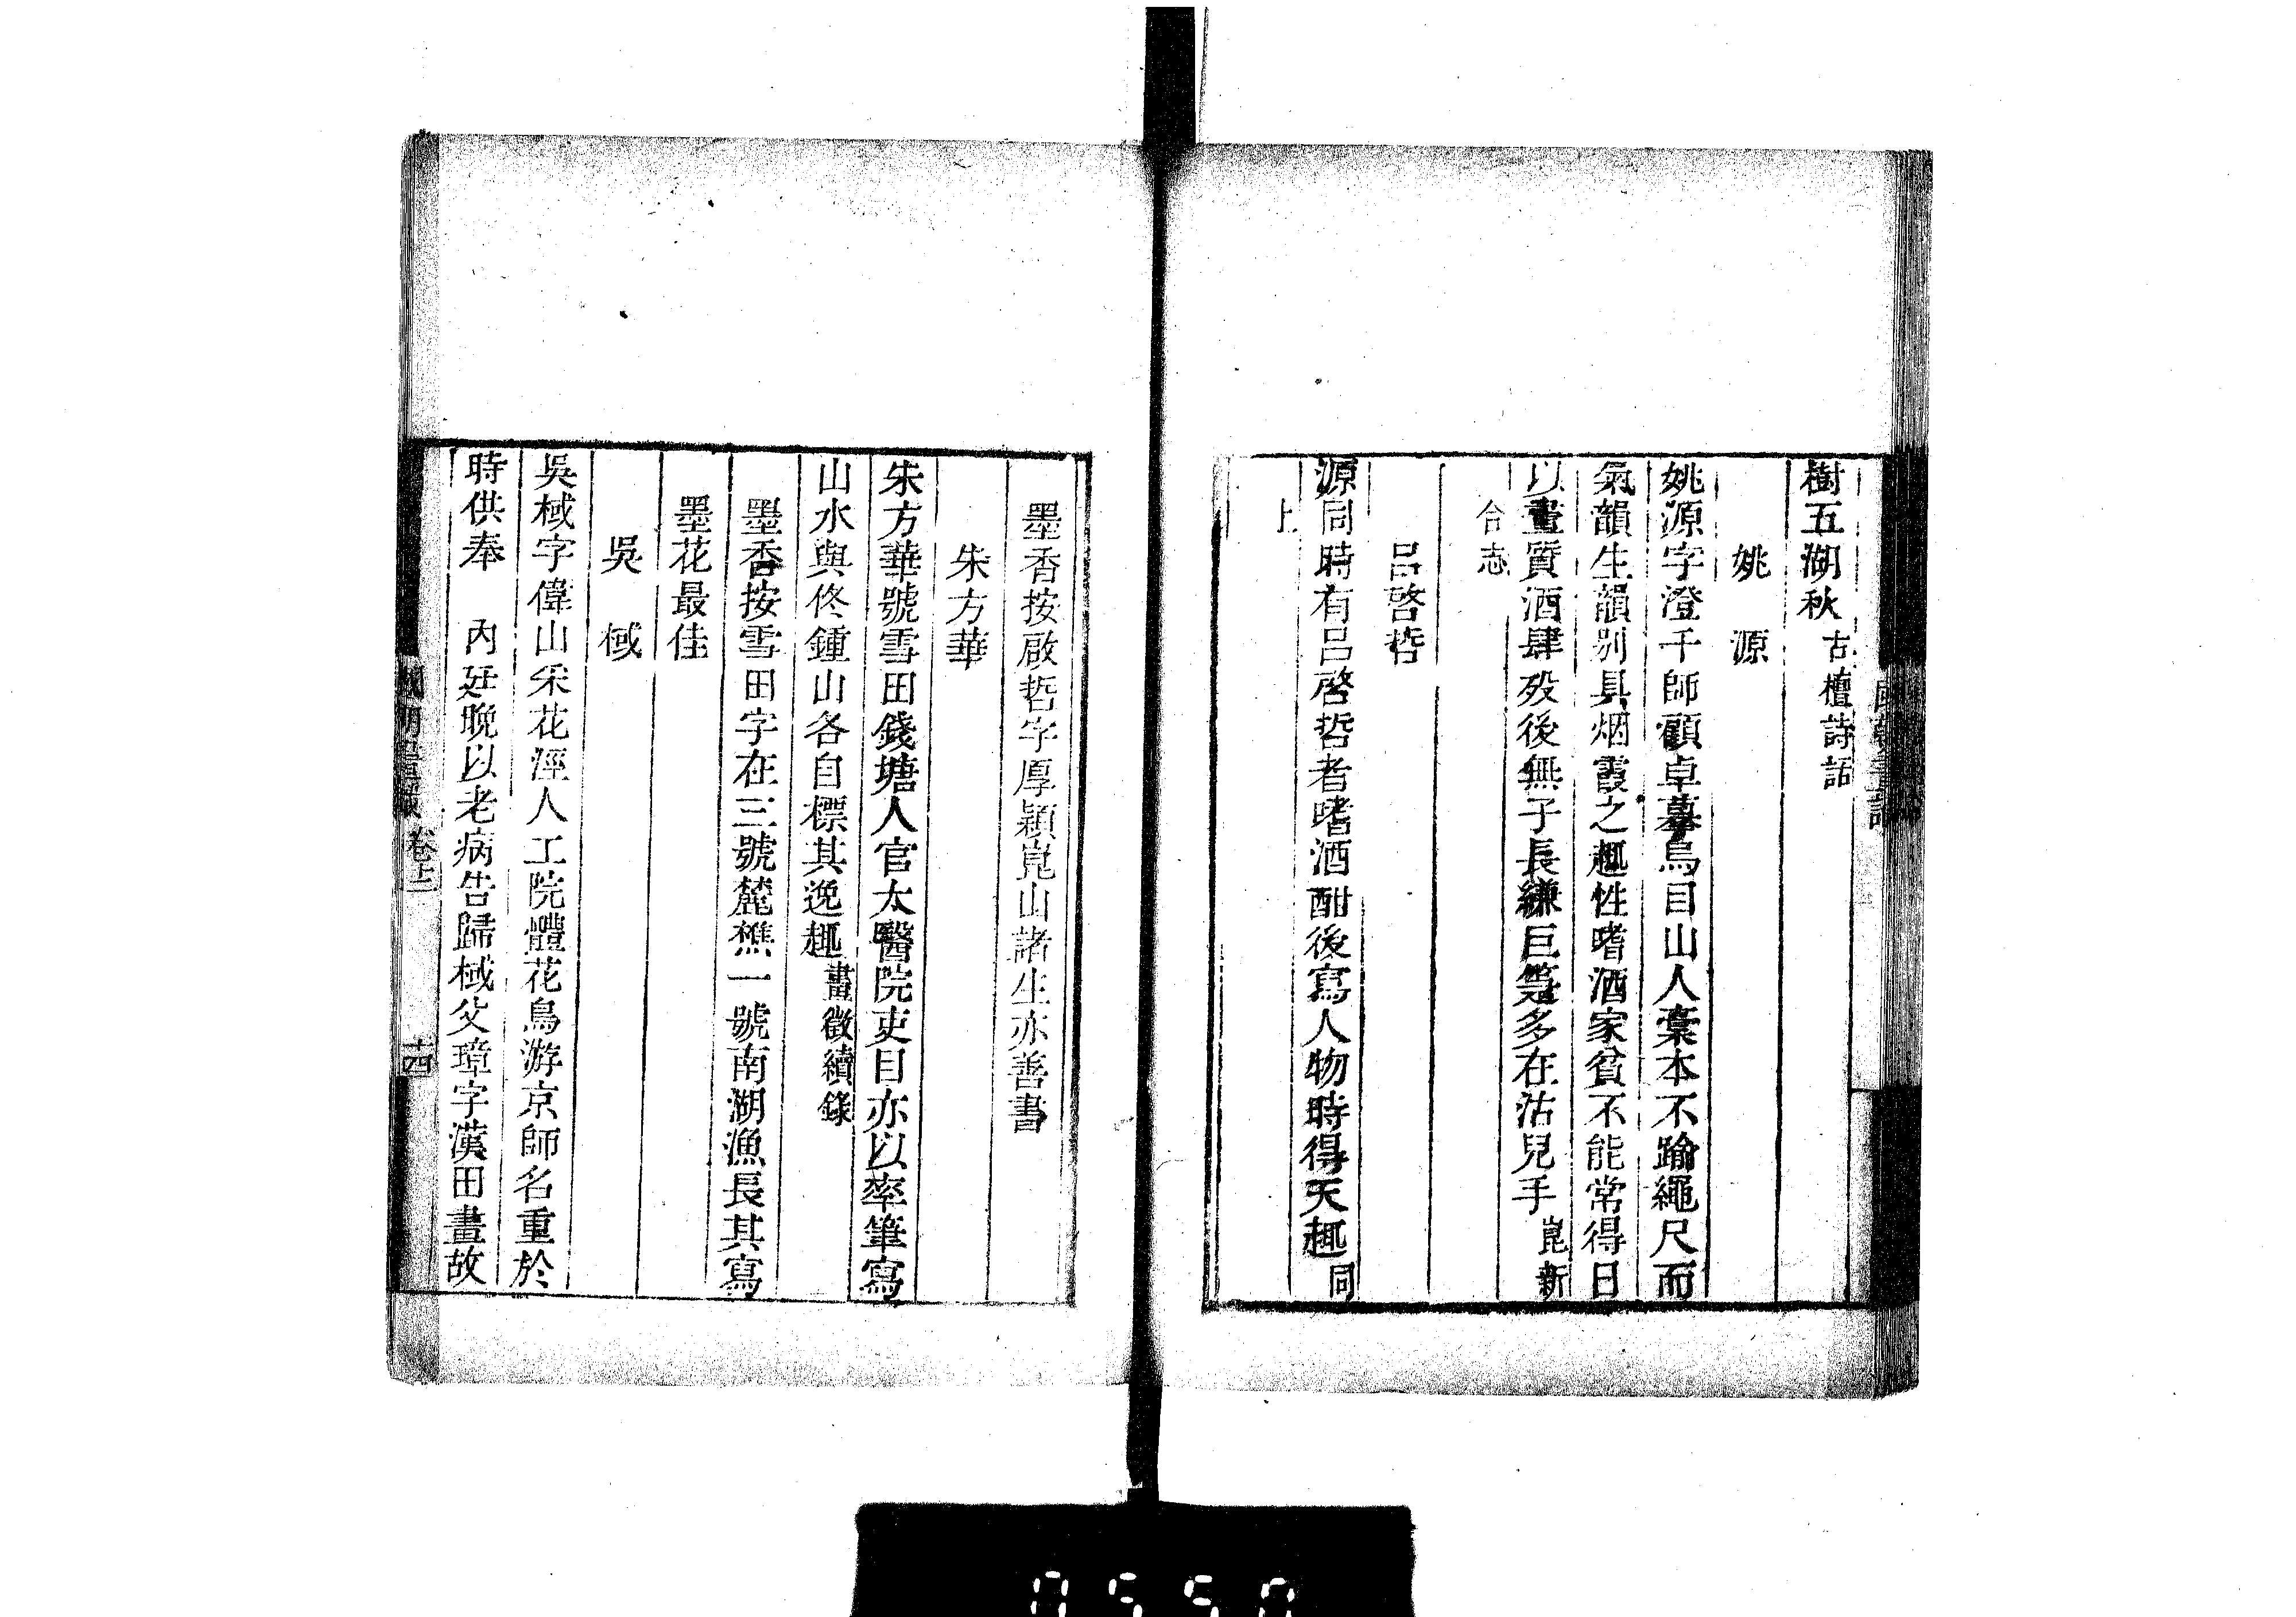 樹五湖秋古檀詩話
姚　源
姚源字澄千師顧卓摹烏目山人藁本不踰繩尺而
氣韻生韻別具烟霞之趣性嗜酒家貧不能常得日
以畫質酒肆歿後無子長縑巨箑多在沽兒手崑新
合志
呂啓哲
源同時有呂啓哲者嗜酒酣後寫人物時得天趣同
上
墨香按啟哲字厚穎崑山諸生亦善書
朱方華
朱方華號雪田錢塘人官太醫院吏目亦以率筆寫
山水與佟鍾山各自標其逸趣畫徵續錄
墨香按雪田字在三號麓樵一號南湖漁長其寫
墨花最佳
吳　棫
吳棫字偉山采花涇人工院體花鳥游京師名重於
時供奉　內廷晚以老病告歸棫父璋字漢田畫故
國朝畫識　卷十二　十四
0550